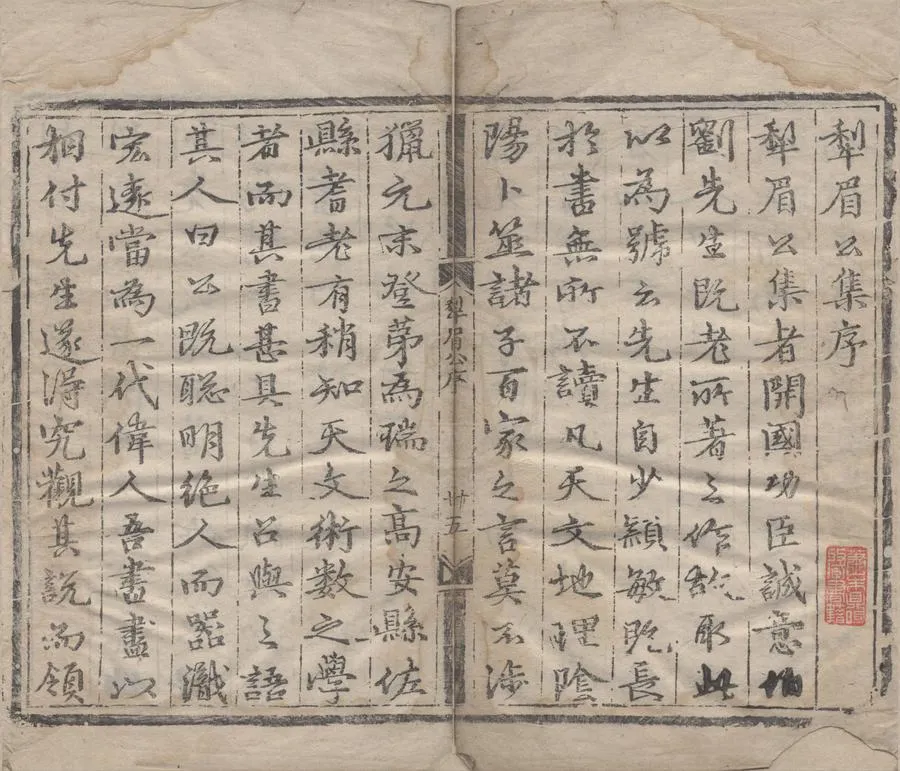 犁眉公集序
犁眉公集者開國功臣誠意伯
劉先生既老所著之作故取此
以為號云先生自少穎敏既長
於書無所不讀凡天文地理陰
陽卜筮諸子百家之言莫不涉
犁眉公序
卅五
獵元末登第為瑞之高安縣佐
縣耆老有稍知天文術數之學
者而其書甚具先生召與之語
其人曰公既聰明絕人而器識
宏遠當為一代偉人吾書盡以
相付先生遂得究觀其說而領